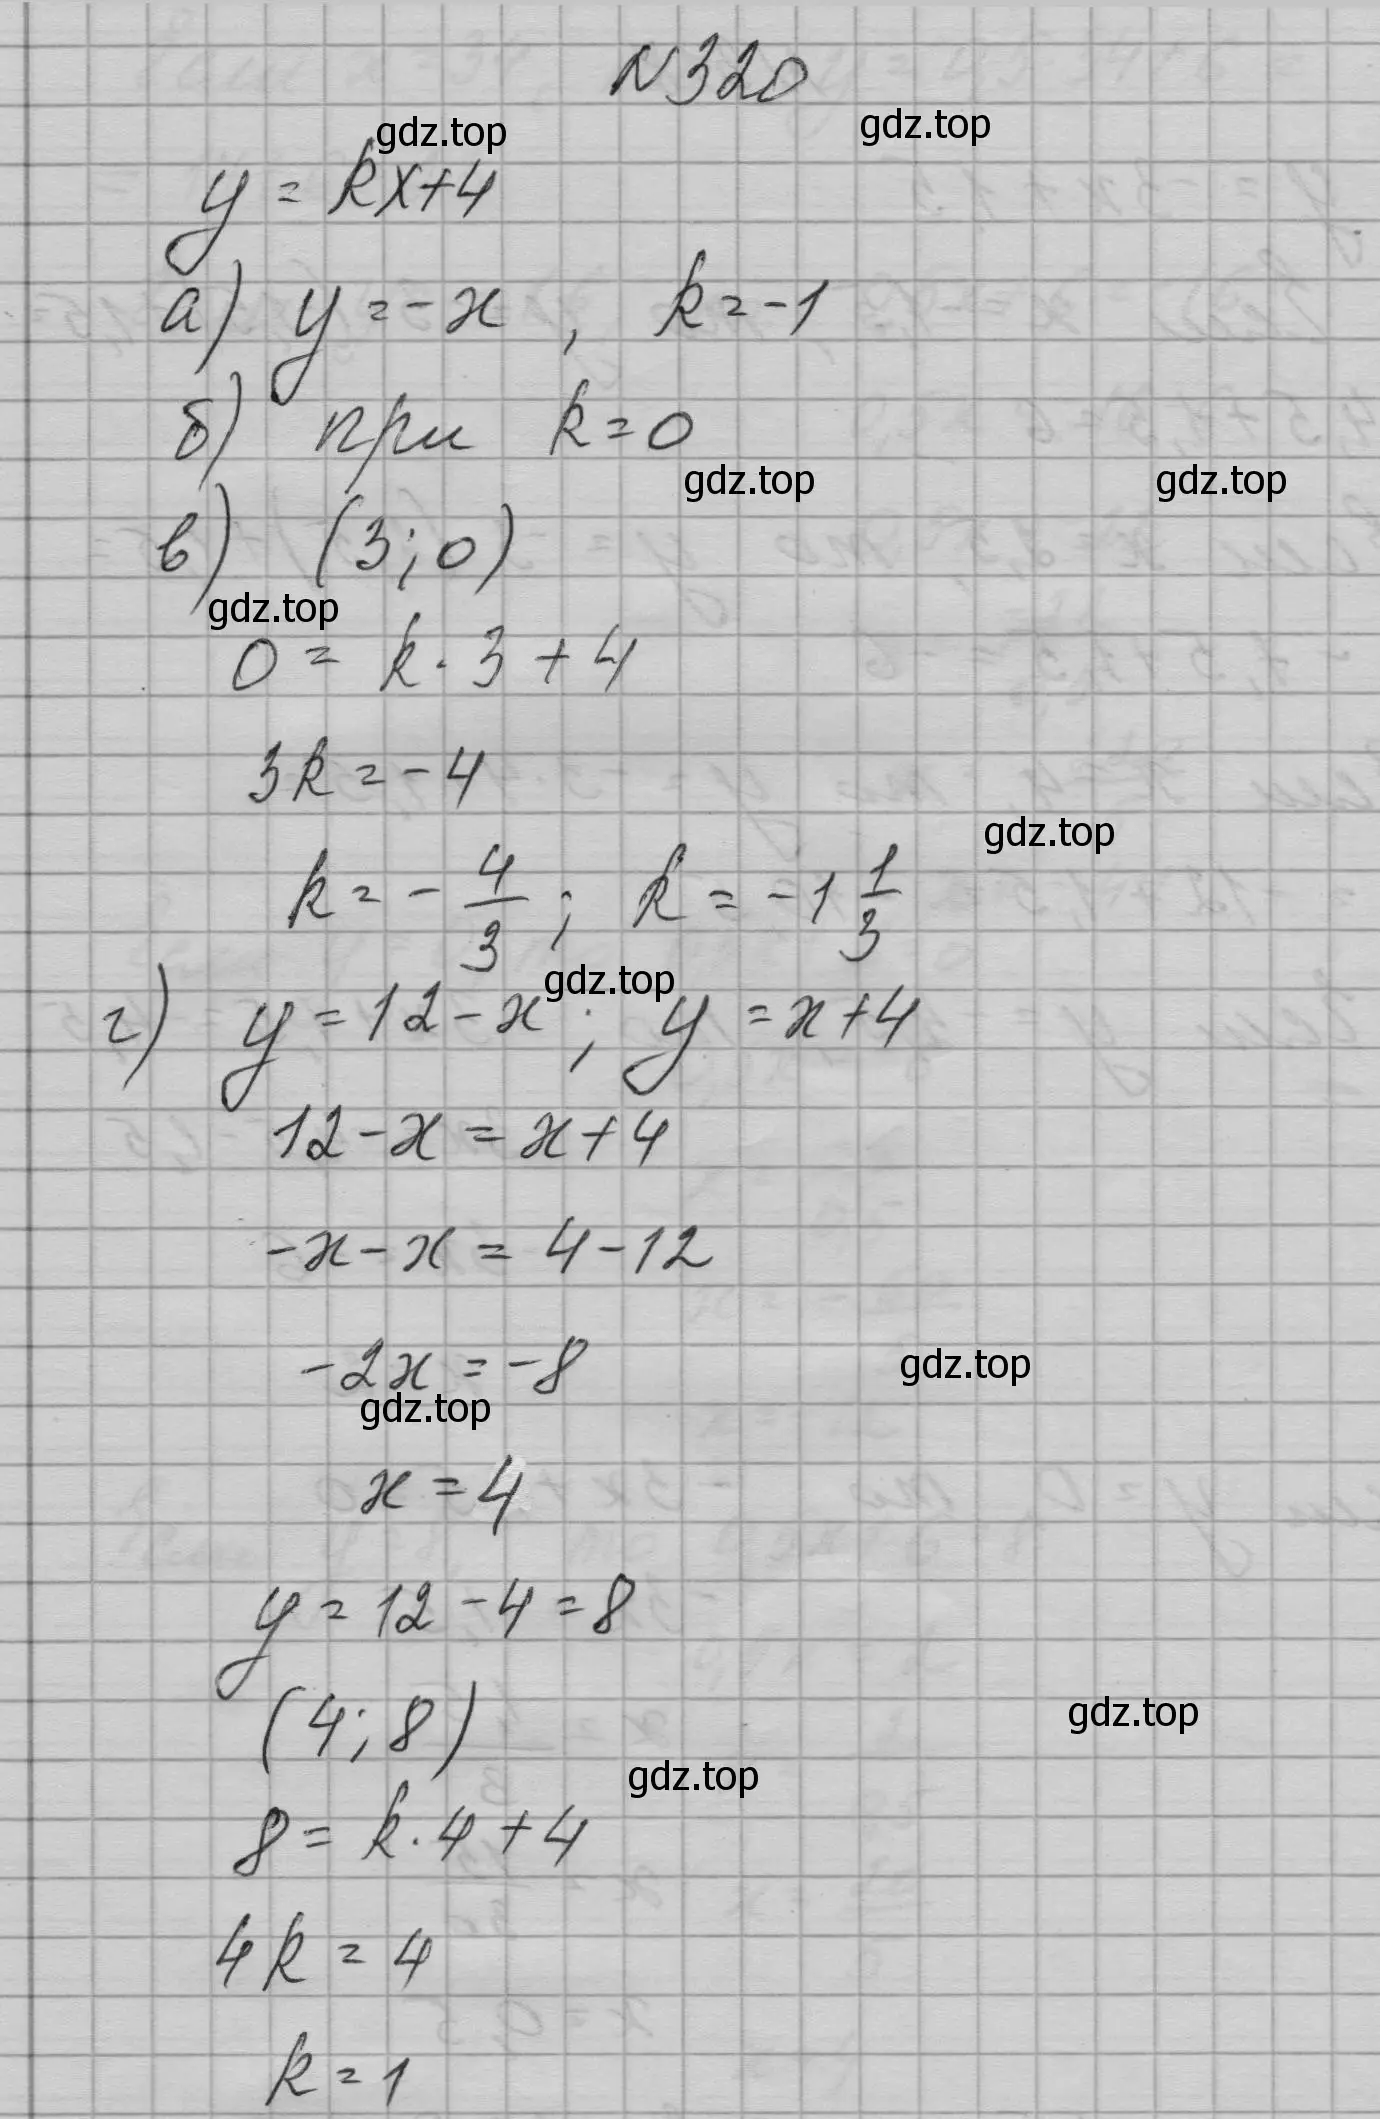 N320
gdz.top
gdz.top
y = kx+4
а) y = -x , k = -1
б) при k = 0
gdz.top
gdz.top
в) (3; 0)
gdz.top
0 = k · 3 + 4
3k = -4
gdz.top
k = - 4/3 ; k = -1 1/3
gdz.top
г) y = 12 - x ; y = x+4
12 - x = x + 4
-x - x = 4 - 12
-2x = -8
gdz.top
gdz.top
x = 4
y = 12 - 4 = 8
(4; 8)
gdz.top
gdz.top
8 = k · 4 + 4
4k = 4
k = 1